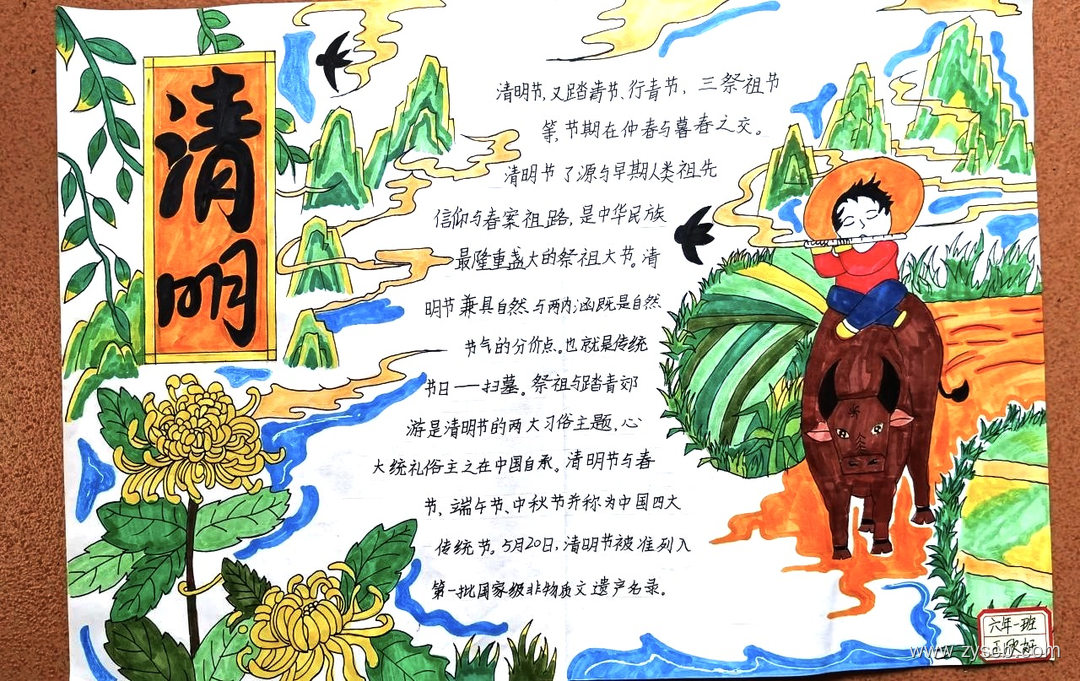 清明
清明节,又踏青节、行青节,三祭祖节
等,节期在仲春与暮春之交。
清明节了源与早期人类祖先
信仰与春案祖路,是中华民族
最隆重盏大的祭祖大节。清
明节兼具自然与两内涵既是自然
节气的分价点。也就是传统
节日——扫墓。祭祖与踏青郊
游是清明节的两大习俗主题,心
大统礼俗主之在中国自承。清明节与春
节,端午节、中秋节并称为中国四大
传统节。5月20日,清明节被准列入
第一批国家级非物质文遗产名录。
六年一班